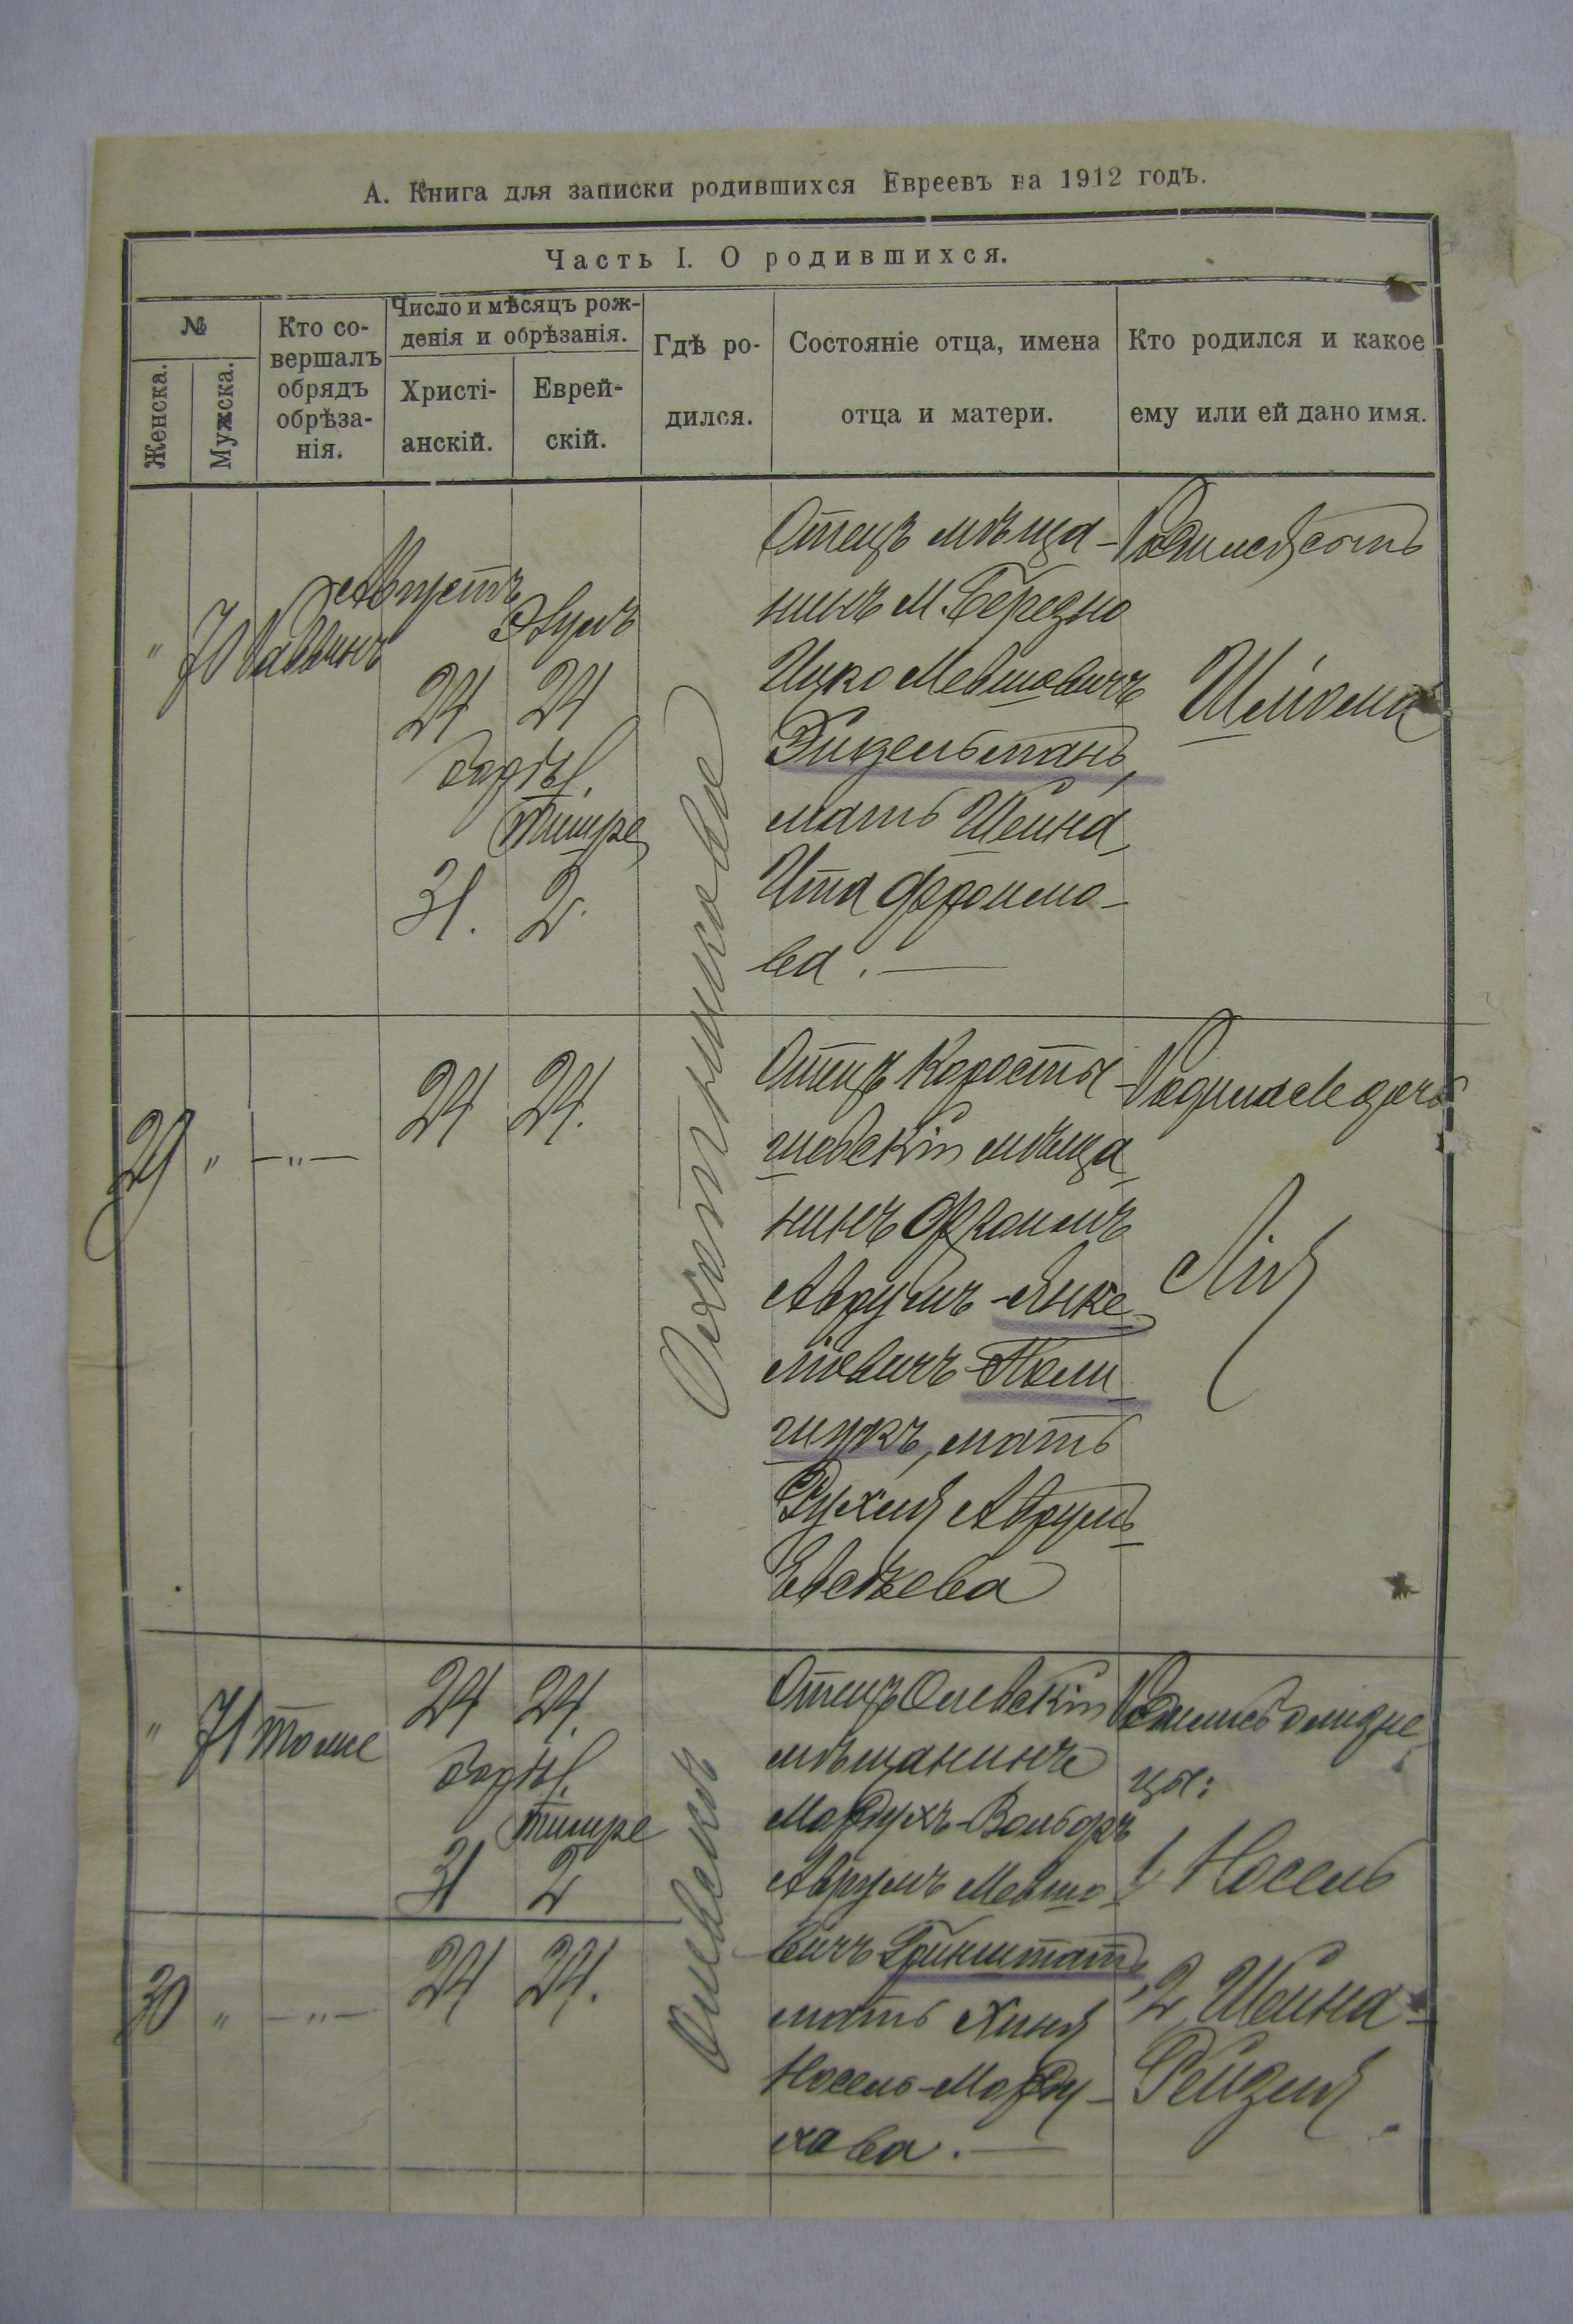 А. Книга для записки родившихся Евреевъ на 1912 годъ.
Часть I. О родившихся.
№
Женска.
Мужска.
Кто со-
вершалъ
обрядъ
обрѣза-
нія.
Число и мѣсяцъ рож-
денія и обрѣзанія.
Христі-
анскій.
Еврей-
скій.
Гдѣ ро-
дился.
Состояніе отца, имена
отца и матери.
Кто родился и какое
ему или ей дано имя.
" 70 Раввинъ
Августъ
Элулъ
24 24
обрѣз.
Тишре
31. 2.
Отецъ мѣща-
нинъ М. Березно
Ицко Мевшовичъ
мать Шейна
Ита Фроимо-
ва. —
Родился сынъ
Шлёма
29 " —"—
24 24.
Отецъ Коросты-
шевскій мѣща
нинъ Фроимъ
Аврумъ-Янке
лiовичъ-Поли
щукъ, мать
Рухля Аврумъ
Евсѣева
Родилась дочь
Лія
" 71 тоже
24 24.
обрѣз.
Тишре
31 2
Олевскъ
Отецъ Олевскій
мѣщанинъ
Мордухъ-Вольфъ
Аврумъ Мевшо
вичъ Гринштатъ
мать Хиня
Носель-Морду-
хова. —
Родились близне
цы:
1, Носель
30 " —"—
24 24.
2, Шейна-
Рейзля